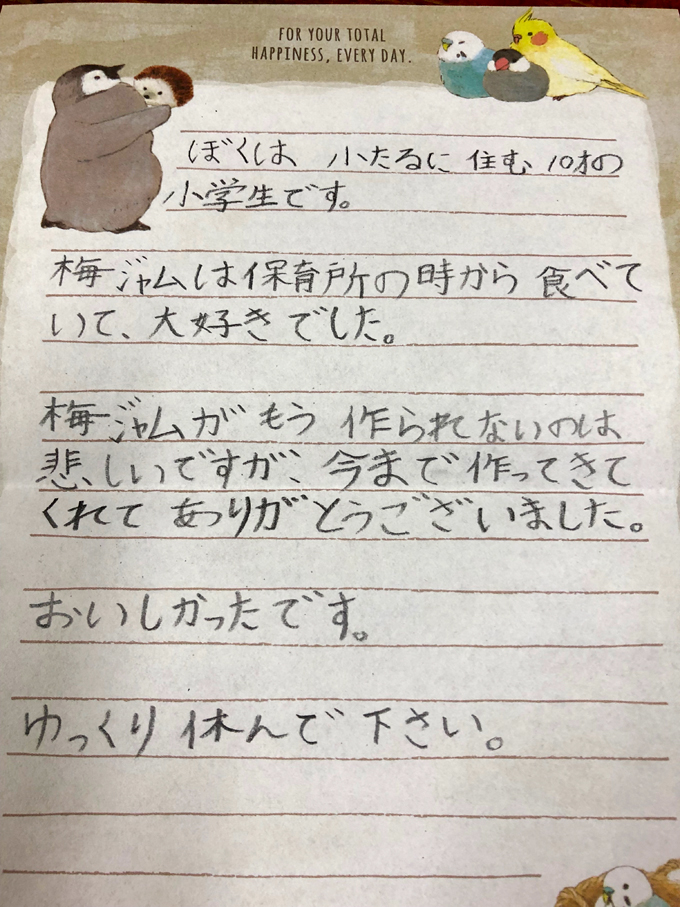 FOR YOUR TOTAL
HAPPINESS, EVERY DAY.
ぼくは、小たるに住む10才の
小学生です。
梅ジャムは保育所の時から食べて
いて、大好きでした。
梅ジャムがもう作られないのは
悲しいですが、今まで作ってきて
くれてありがとうございました。
おいしかったです。
ゆっくり休んで下さい。